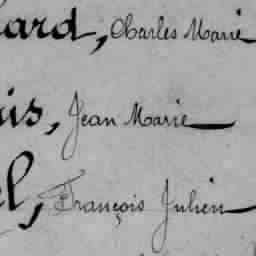 ard, Charles Marie
is, Jean Marie
el, François Julien